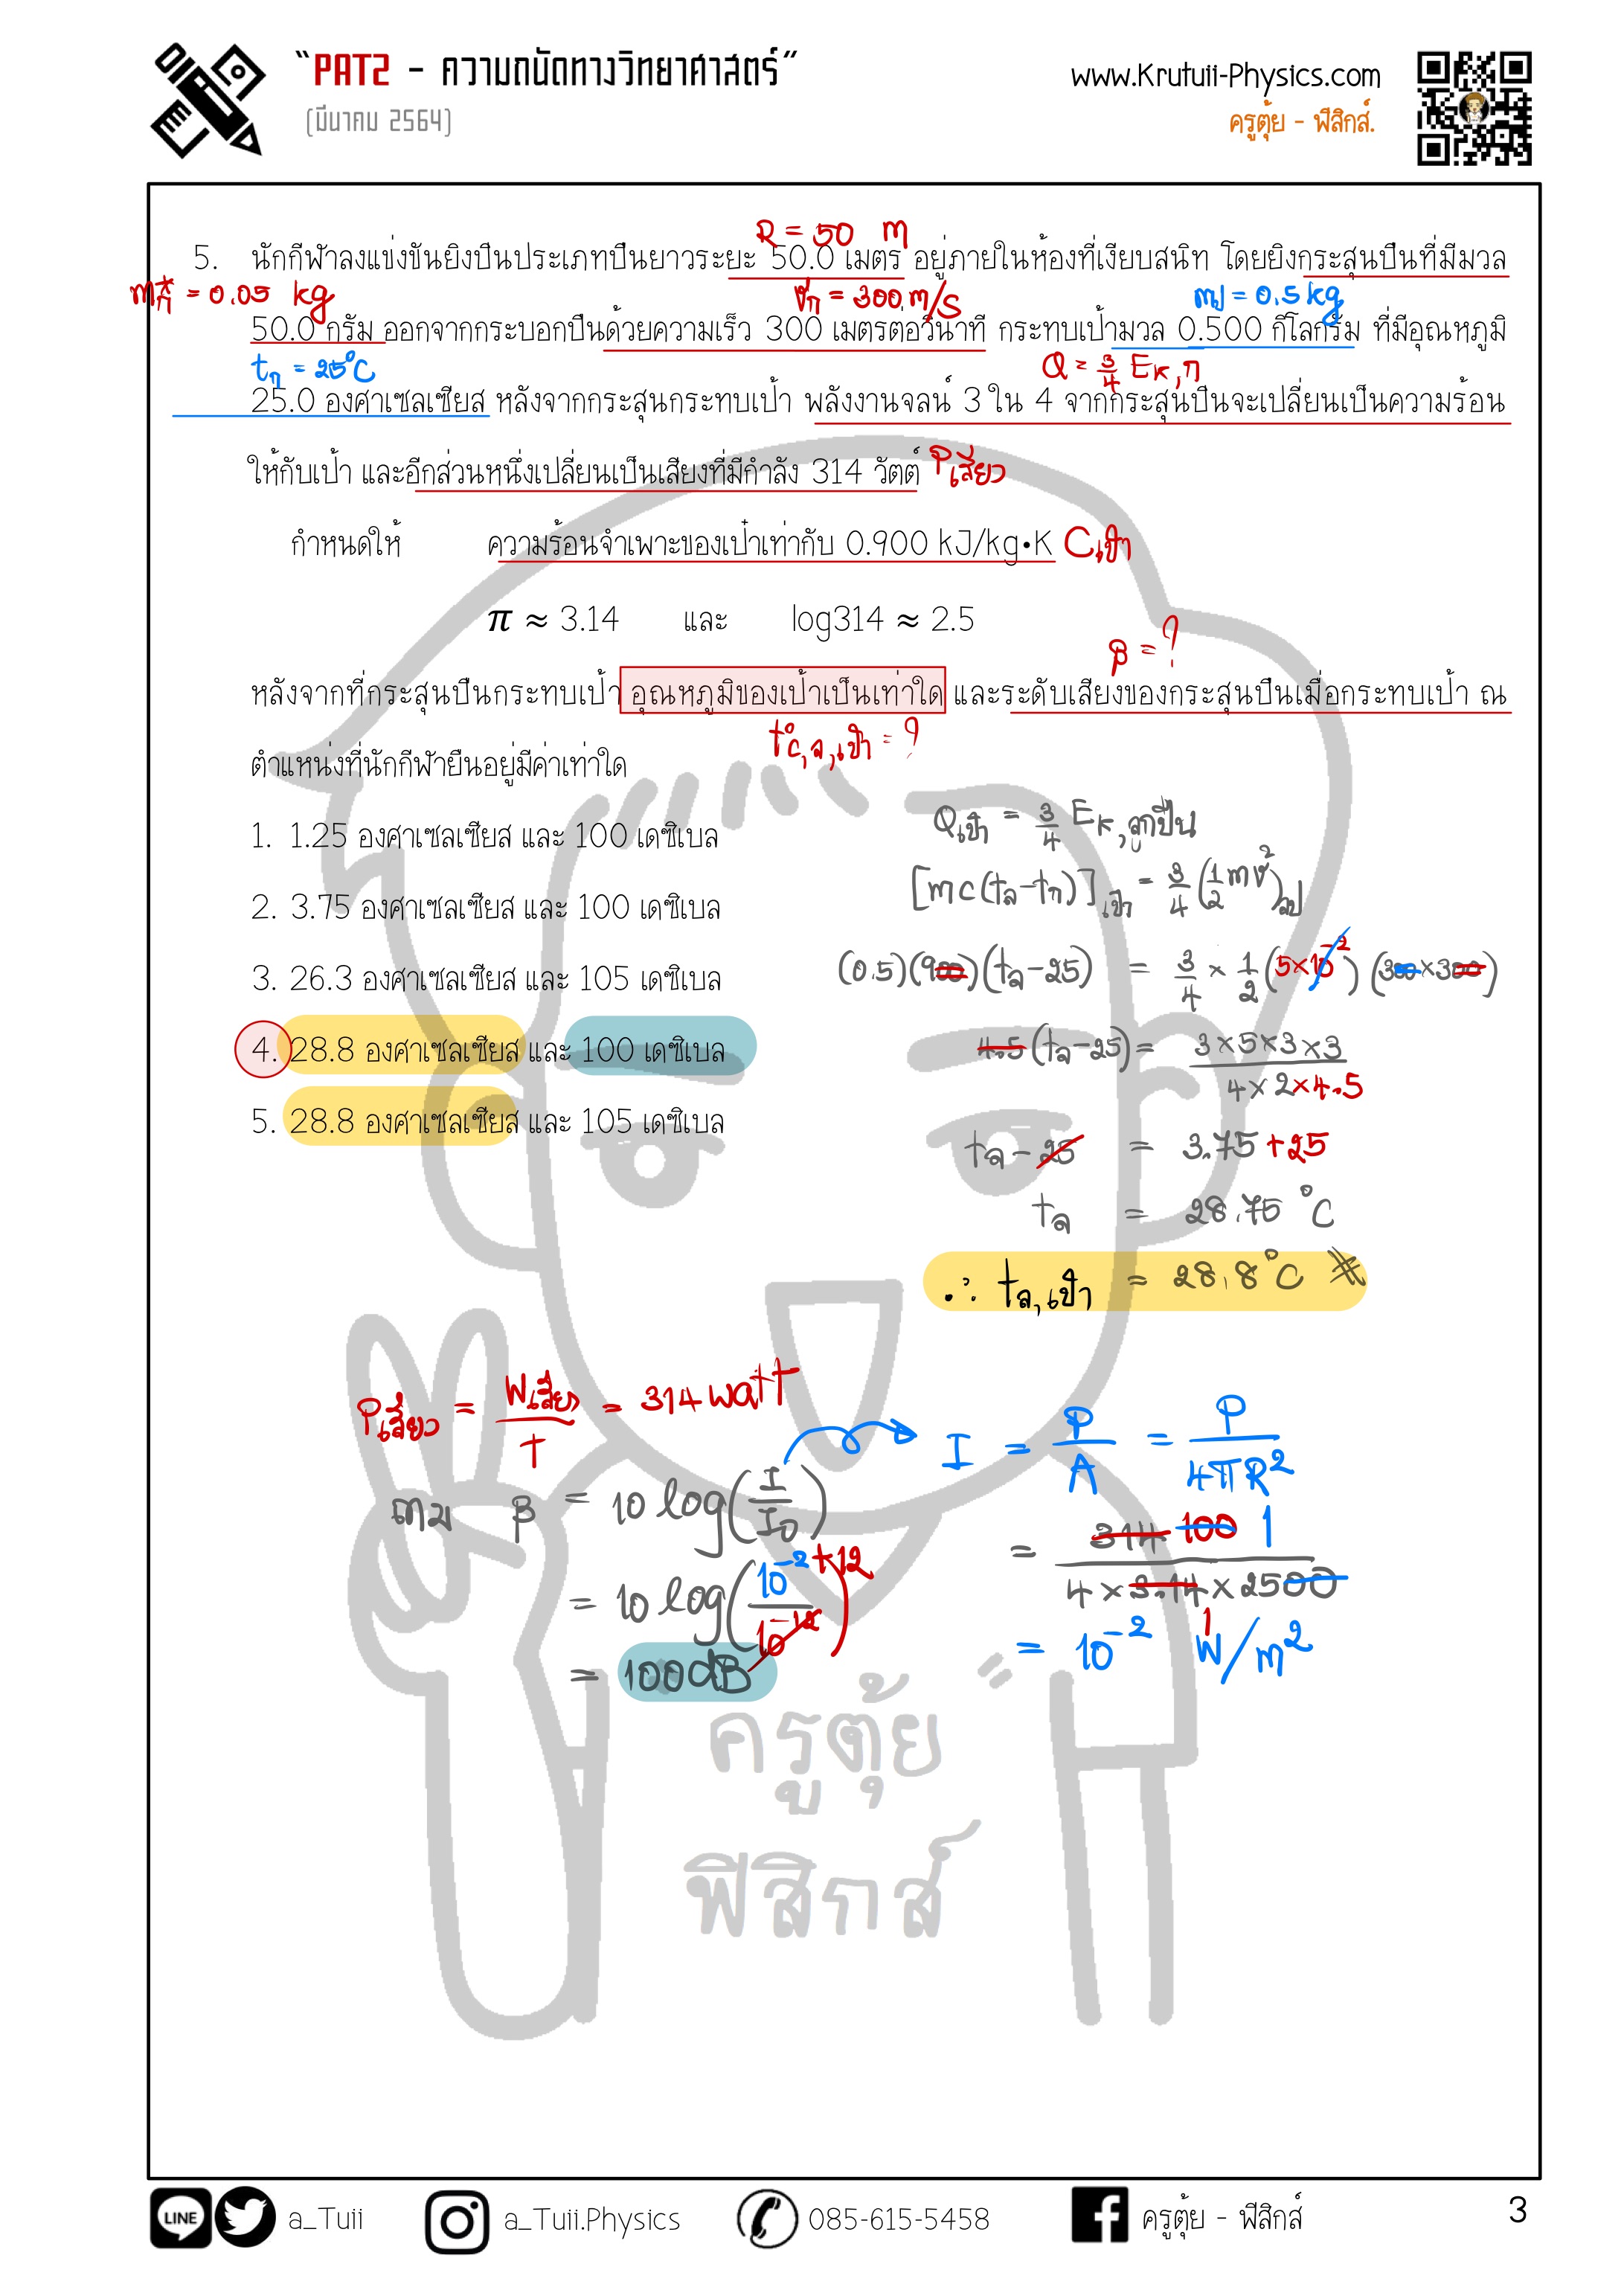 “PAT2 - ความถนัดทางวิทยาศาสตร์”
(มีนาคม 2564)
www.Krutuii-Physics.com
ครูตุ้ย - ฟิสิกส์.
R = 50 m
5. นักกีฬาลงแข่งขันยิงปืนประเภทปืนยาวระยะ 50.0 เมตร อยู่ภายในห้องที่เงียบสนิท โดยยิงกระสุนปืนที่มีมวล
= 0.05 kg = 300 m/s = 0.5 kg
50.0 กรัม ออกจากกระบอกปืนด้วยความเร็ว 300 เมตรต่อวินาที กระทบเป้ามวล 0.500 กิโลกรัม ที่มีอุณหภูมิ
tก = 25°C Q = 3/4 Eк,ก
25.0 องศาเซลเซียส หลังจากกระสุนกระทบเป้า พลังงานจลน์ 3 ใน 4 จากกระสุนปืนจะเปลี่ยนเป็นความร้อน
ให้กับเป้า และอีกส่วนหนึ่งเปลี่ยนเป็นเสียงที่มีกำลัง 314 วัตต์ Pเสียง
กำหนดให้ ความร้อนจำเพาะของเป้าเท่ากับ 0.900 kJ/kg•K Cเป้า
π ≈ 3.14 และ log314 ≈ 2.5
β = ?
หลังจากที่กระสุนปืนกระทบเป้า อุณหภูมิของเป้าเป็นเท่าใด และระดับเสียงของกระสุนปืนเมื่อกระทบเป้า ณ
t°C,ล,เป้า = ?
ตำแหน่งที่นักกีฬายืนอยู่มีค่าเท่าใด
1. 1.25 องศาเซลเซียส และ 100 เดซิเบล
2. 3.75 องศาเซลเซียส และ 100 เดซิเบล
3. 26.3 องศาเซลเซียส และ 105 เดซิเบล
4. 28.8 องศาเซลเซียส และ 100 เดซิเบล
5. 28.8 องศาเซลเซียส และ 105 เดซิเบล
Qเป้า = 3/4 Eк,ลูกปืน
[mc(tล-tก)]เป้า = 3/4 (1/2 mv²)ลป
(0.5)(900)(tล-25) = 3/4 × 1/2 (5×10⁻²) (300×300)
4.5(tล-25) = 3×5×3×3 / 4×2×4.5
tล-25 = 3.75 +25
tล = 28.75 °C
∴ tล,เป้า = 28.8°C #
Pเสียง = Wเสียง / t = 314 watt
I = P/A = P / 4πR²
ถาม β = 10 log(I/I₀)
= 314 100 1 / 4×3.14×2500
= 10 log(10⁻²⁺¹² / 10⁻¹²)
= 10⁻² W/m²
= 100dB
ครูตุ้ย
ฟิสิกส์
LINE a_Tuii a_Tuii.Physics 085-615-5458 ครูตุ้ย - ฟิสิกส์ 3